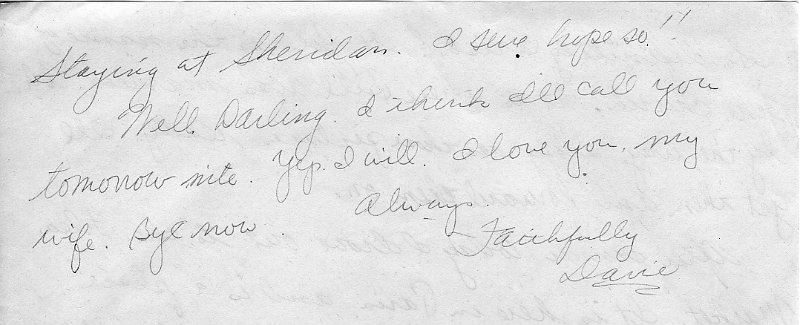 Staying at Sheridan. I sure hope so!!
Well Darling. I think I'll call you
tomorrow nite. Yep. I will. I love you. my
wife. Bye now. Always.
Faithfully
Davie